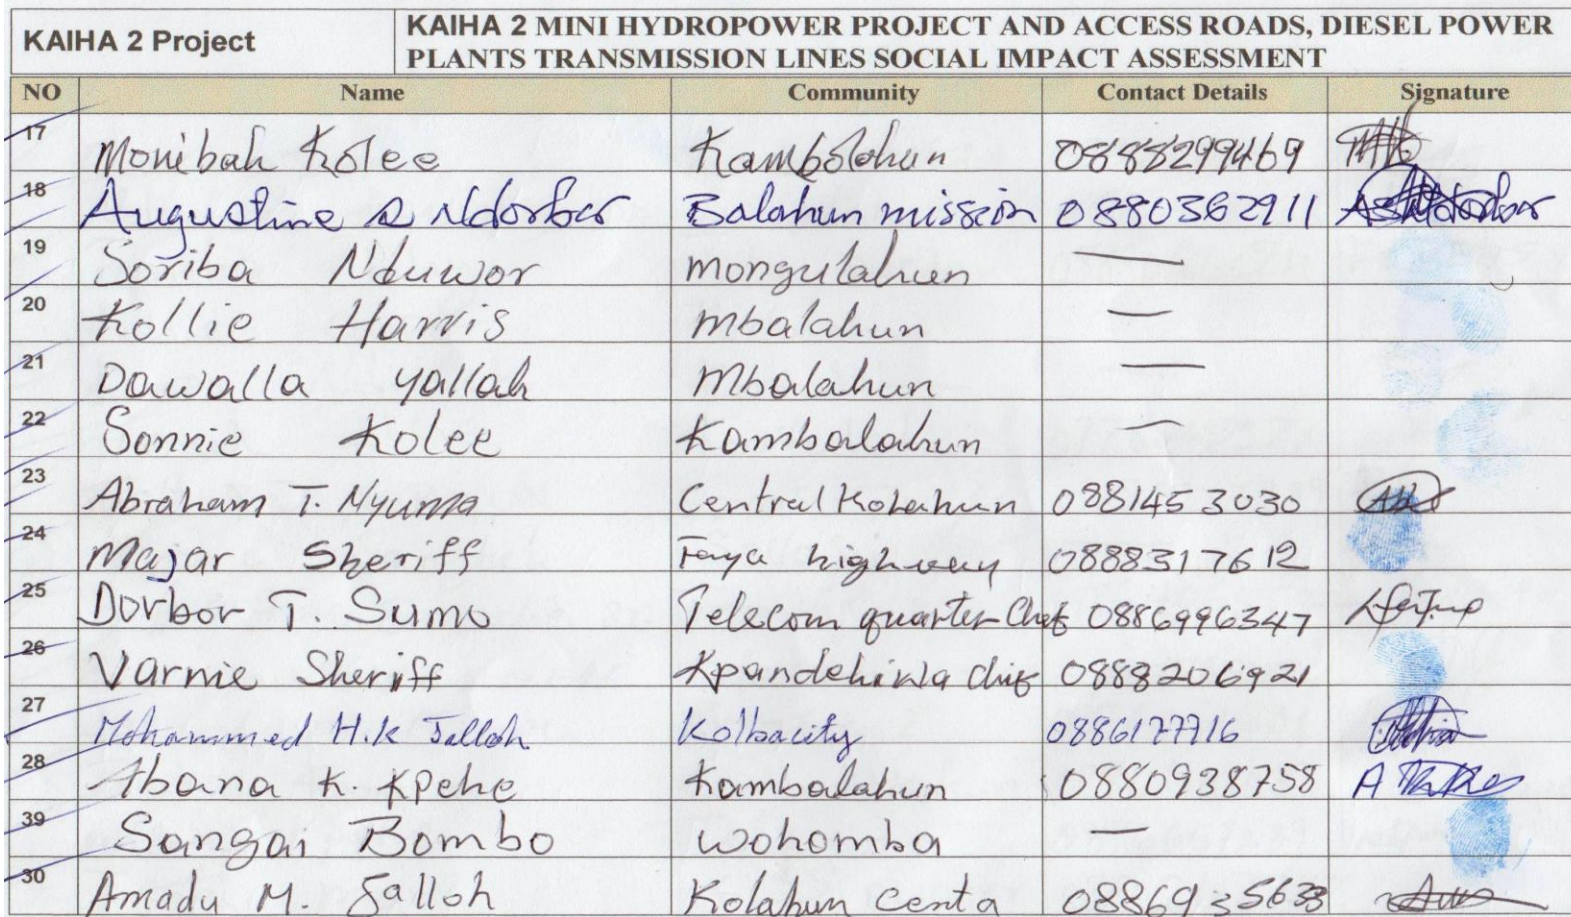 KAIHA 2 Project
KAIHA 2 MINI HYDROPOWER PROJECT AND ACCESS ROADS, DIESEL POWER
PLANTS TRANSMISSION LINES SOCIAL IMPACT ASSESSMENT
NO Name Community Contact Details Signature
17 Monibah Kolee Kambolahun 0888299469
18 Augustine S Ndorbor Balahun mission 0880362911
19 Soriba Nduwor mongulahun —
20 Kollie Harris mbalahun —
21 Dawalla Yallah Mbalahun —
22 Sonnie Kolee Kambalahun —
23 Abraham T. Nyuma Central Kolahun 0881453030
24 Majar Sheriff Faya highway 0888317612
25 Dorbor T. Sumo Telecom quarter Chef 0886996347
26 Varnie Sheriff Kpandehinla chif 0888206921
27 Mohammed H.K Jalloh Kolbacity 0886177716
28 Abana K. Kpehe Kambalahun 0880938758
39 Sangai Bombo Wohomba —
30 Amadu M. Jalloh Kolahun Centa 0886935638